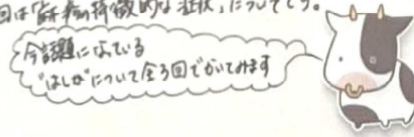 回は「麻疹の特徴的な症状」についてです。
今話題になっている
"はしか"について全3回でかいてみます